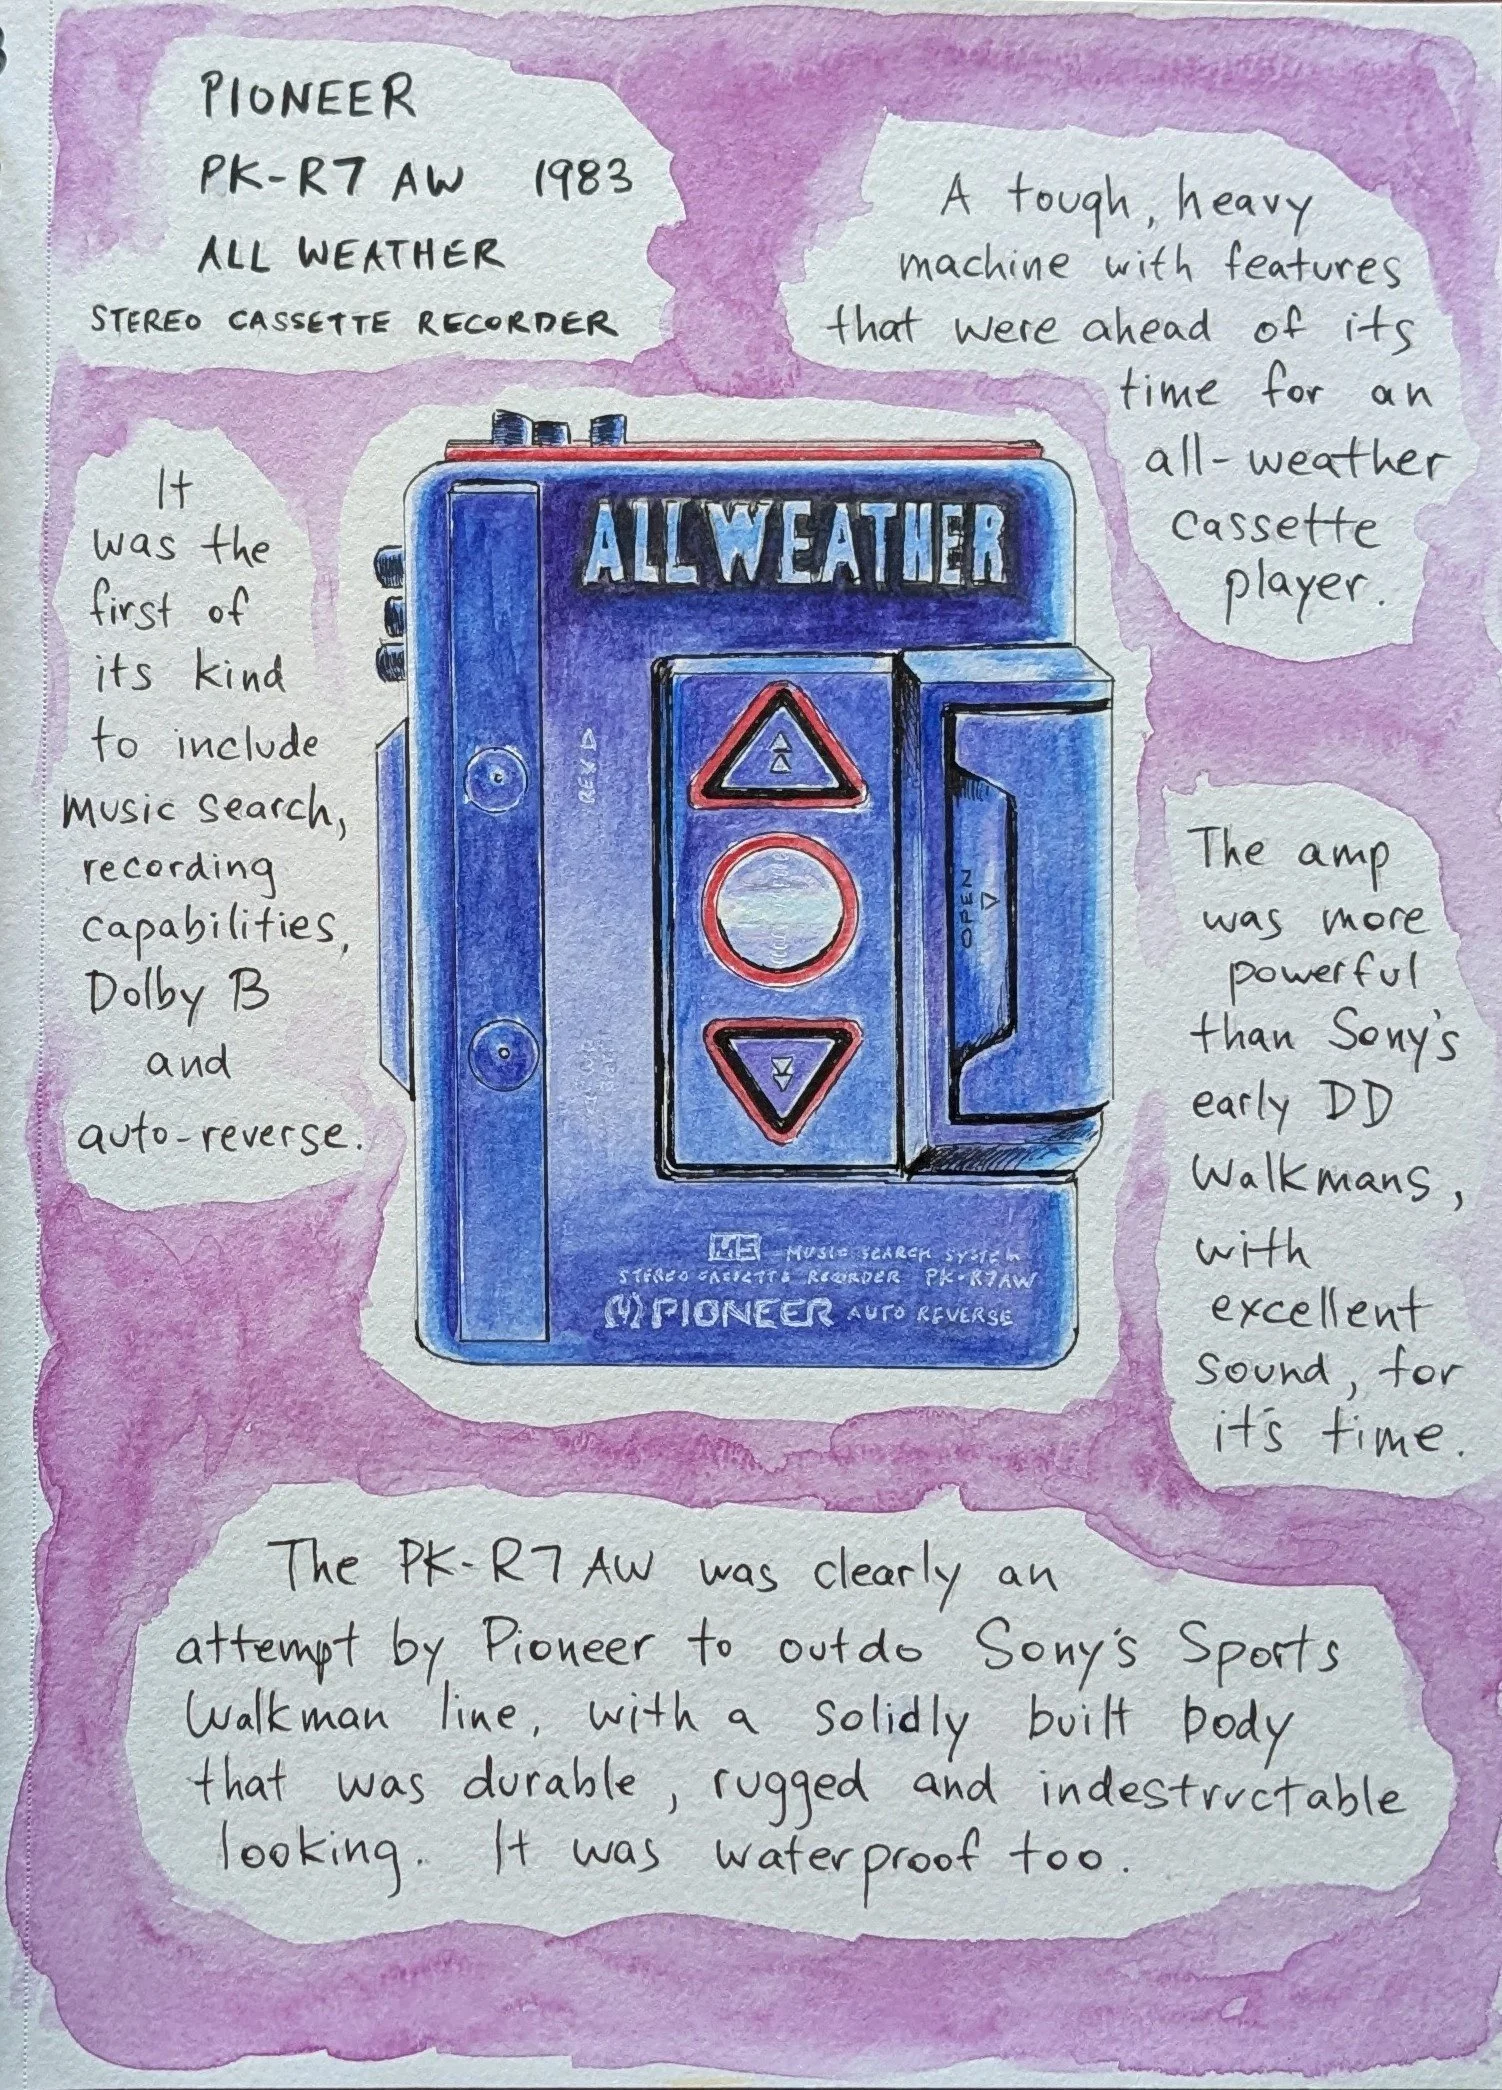 PIONEER
PK-R7 AW 1983
ALL WEATHER
STEREO CASSETTE RECORDER
A tough, heavy
machine with features
that were ahead of its
time for an
all-weather
cassette
player.
It
was the
first of
its kind
to include
music search,
recording
capabilities,
Dolby B
and
auto-reverse.
ALL WEATHER
OPEN
MS MUSIC SEARCH SYSTEM
STEREO CASSETTE RECORDER PK-R7AW
PIONEER AUTO REVERSE
The amp
was more
powerful
than Sony's
early DD
Walkmans,
with
excellent
sound, for
it's time.
The PK-R7 AW was clearly an
attempt by Pioneer to outdo Sony's Sports
Walkman line, with a solidly built body
that was durable, rugged and indestructable
looking. It was waterproof too.